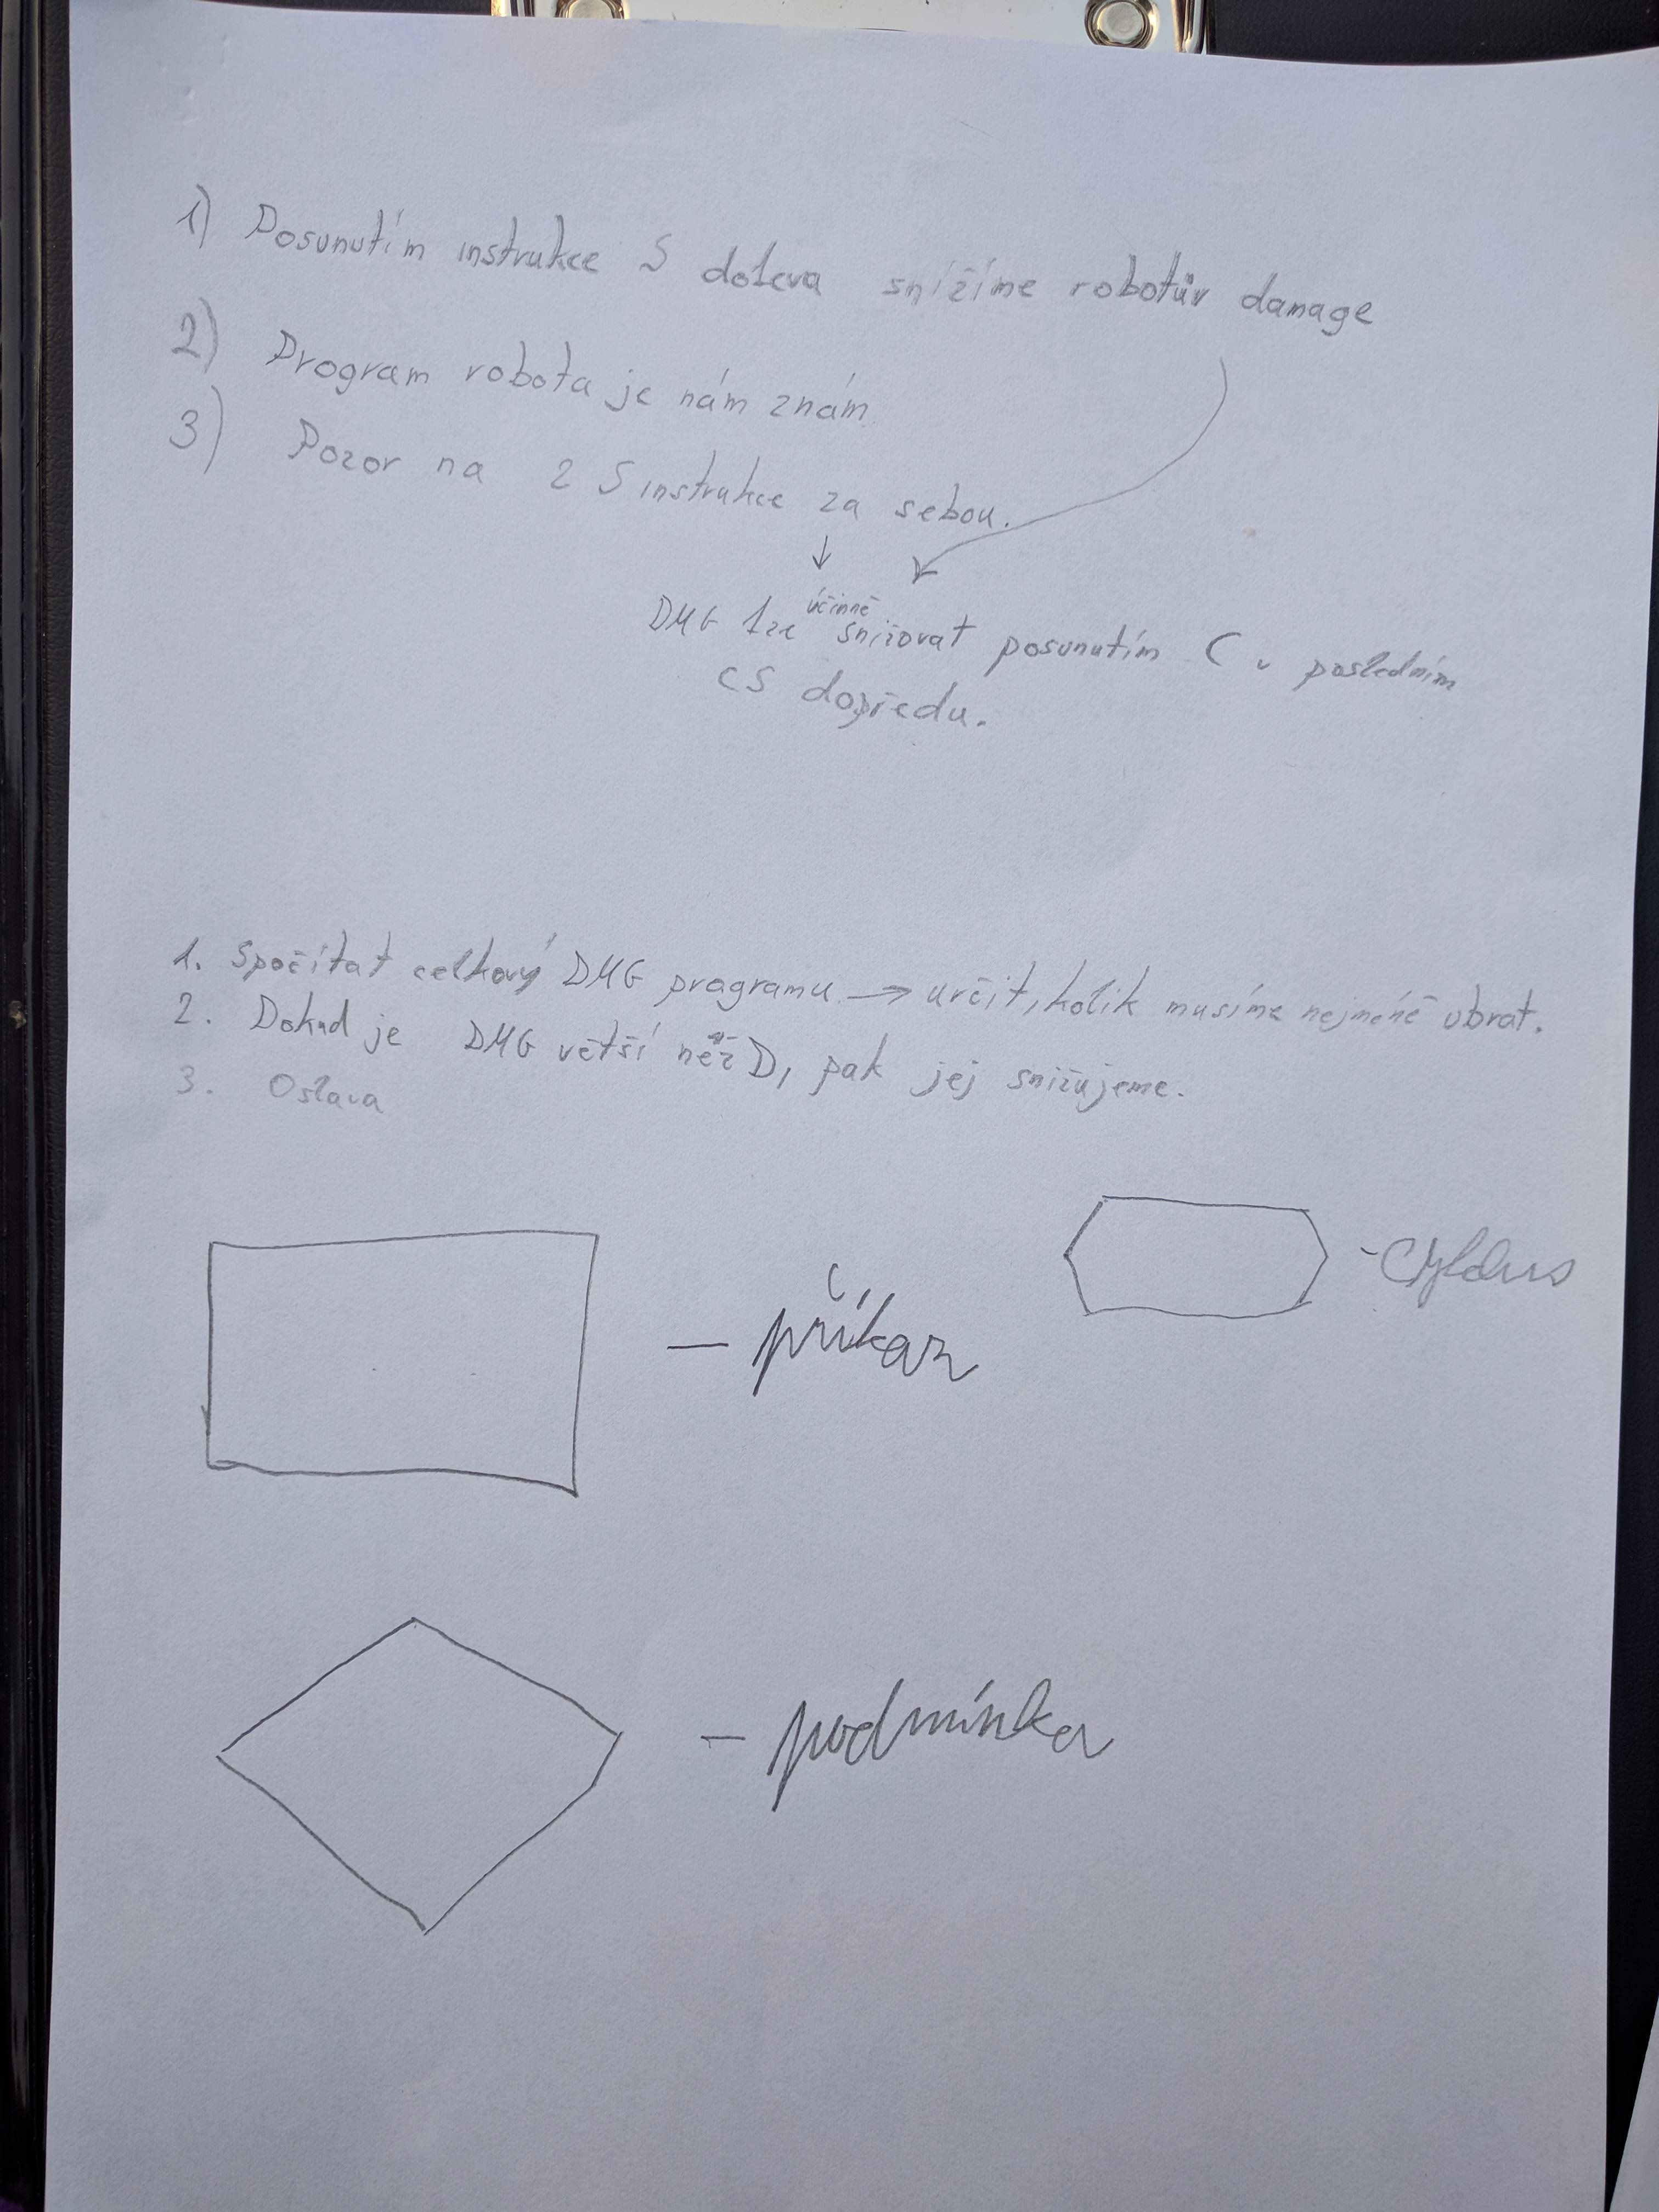 1) Posunutím instrukce S doleva snížíme robotův damage
2) Program robota je nám znám
3) Pozor na 2 S instrukce za sebou.
DMG lze účinně snižovat posunutím C v posledním
CS dopředu.
1. Spočítat celkový DMG programu → určit, kolik musíme nejméně ubrat.
2. Dokud je DMG větší než D, pak jej snižujeme.
3. Oslava
- Cyklus
- příkaz
- podmínka